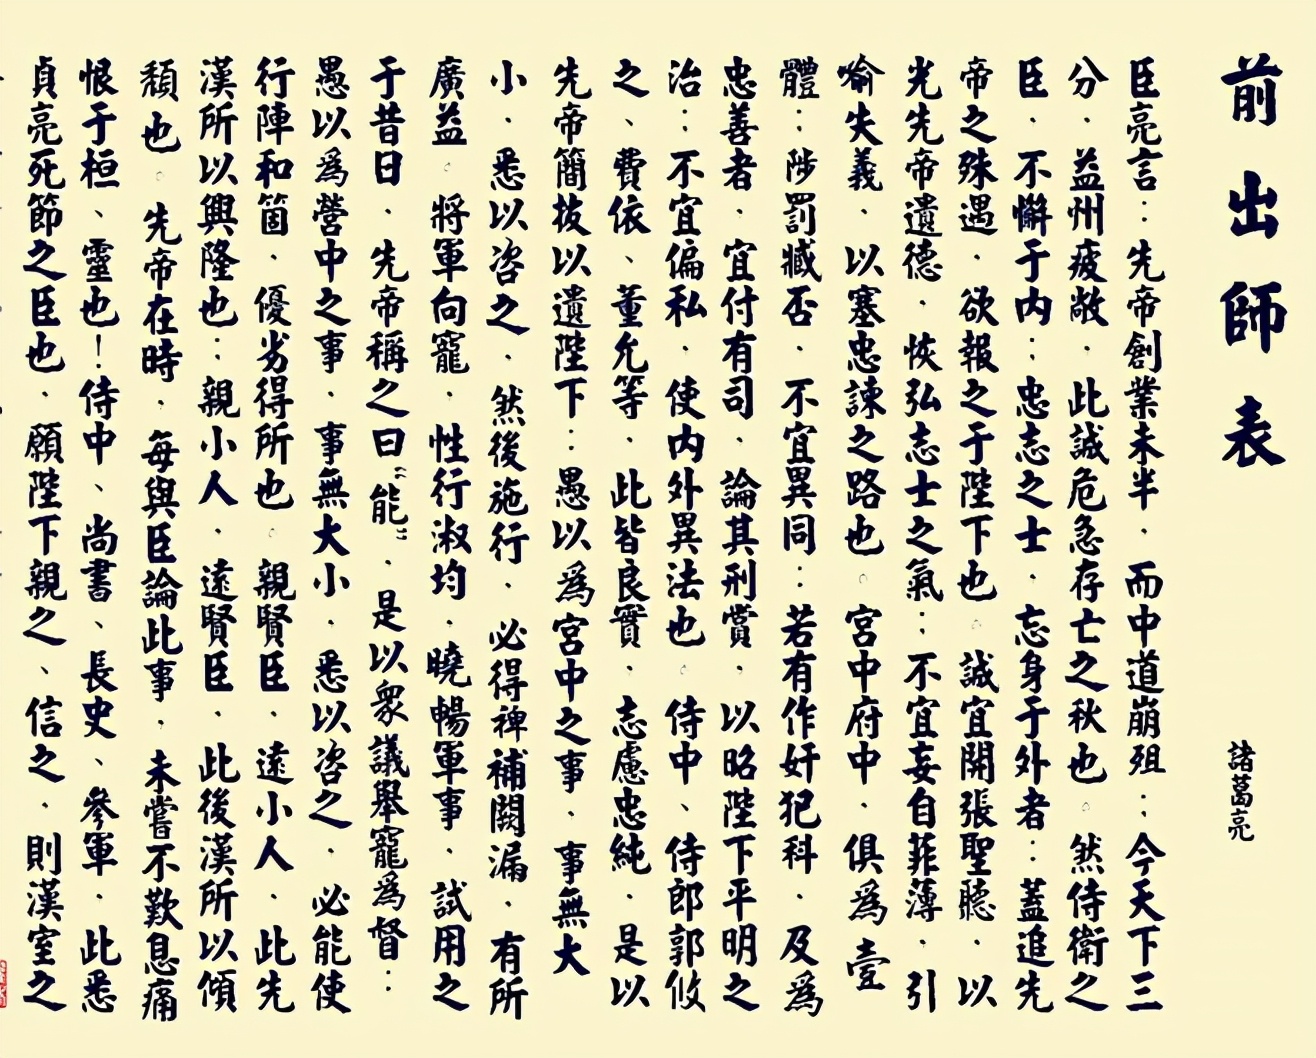 前出師表
諸葛亮
臣亮言：先帝創業未半．而中道崩殂：今天下三
分．益州疲敝．此誠危急存亡之秋也。然侍衛之
臣．不懈于内：忠志之士．忘身于外者：蓋追先
帝之殊遇．欲報之于陛下也。誠宜開張聖聽．以
光先帝遺德．恢弘志士之氣：不宜妄自菲薄．引
喻失義．以塞忠諫之路也。宮中府中．俱爲壹
體：陟罰臧否．不宜異同：若有作奸犯科．及爲
忠善者．宜付有司．論其刑賞．以昭陛下平明之
治：不宜偏私．使内外異法也。侍中、侍郎郭攸
之、費依、董允等．此皆良實．志慮忠純．是以
先帝簡拔以遺陛下：愚以爲宮中之事．事無大
小．悉以咨之．然後施行．必得裨補闕漏．有所
廣益。將軍向寵．性行淑均．曉暢軍事．試用之
于昔日．先帝稱之曰“能”．是以衆議舉寵爲督：
愚以爲營中之事．事無大小．悉以咨之．必能使
行陣和箇．優劣得所也。親賢臣．遠小人．此先
漢所以興隆也：親小人．遠賢臣．此後漢所以傾
頹也。先帝在時．每與臣論此事．未嘗不歎息痛
恨于桓、靈也！侍中、尚書、長史、參軍．此悉
貞亮死節之臣也．願陛下親之、信之．則漢室之